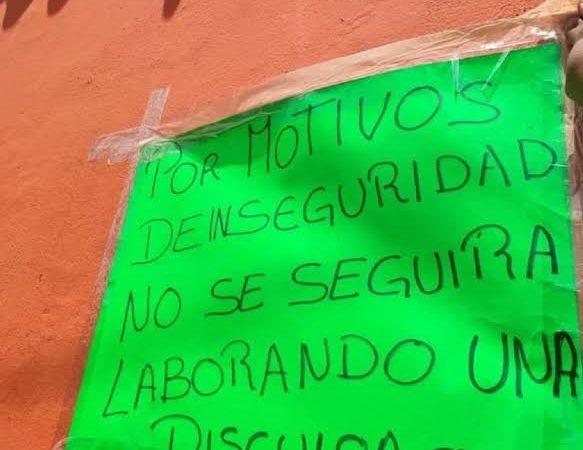 POR MOTIVOS
DE INSEGURIDAD
NO SE SEGUIRA
LABORANDO UNA
DISCULPA